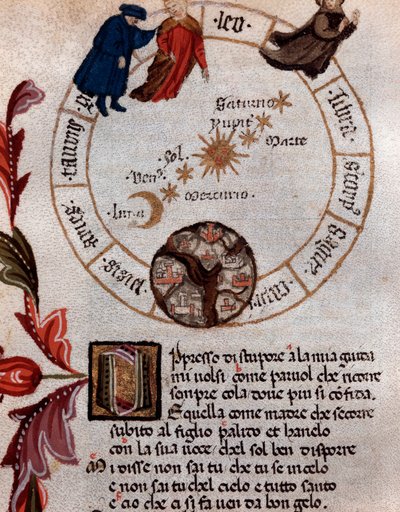 leo
libra
scorp
taurus
aries
piscis
Saturno
Jupit
Marte
Sol
Ven
Mercurio
Luna
Oppresso di stupore a la mia guida
mi volsi come parvol che ricorre
sempre cola dove piu si cõfida
E quella come madre che socorre
subito al figlio palito et hanelo
con la sua voce chel sol ben disporre
Mi disse non sai tu che tu se in celo
e non sai tu chel cielo e tutto santo
e cio che ci si fa ven da bon gelo